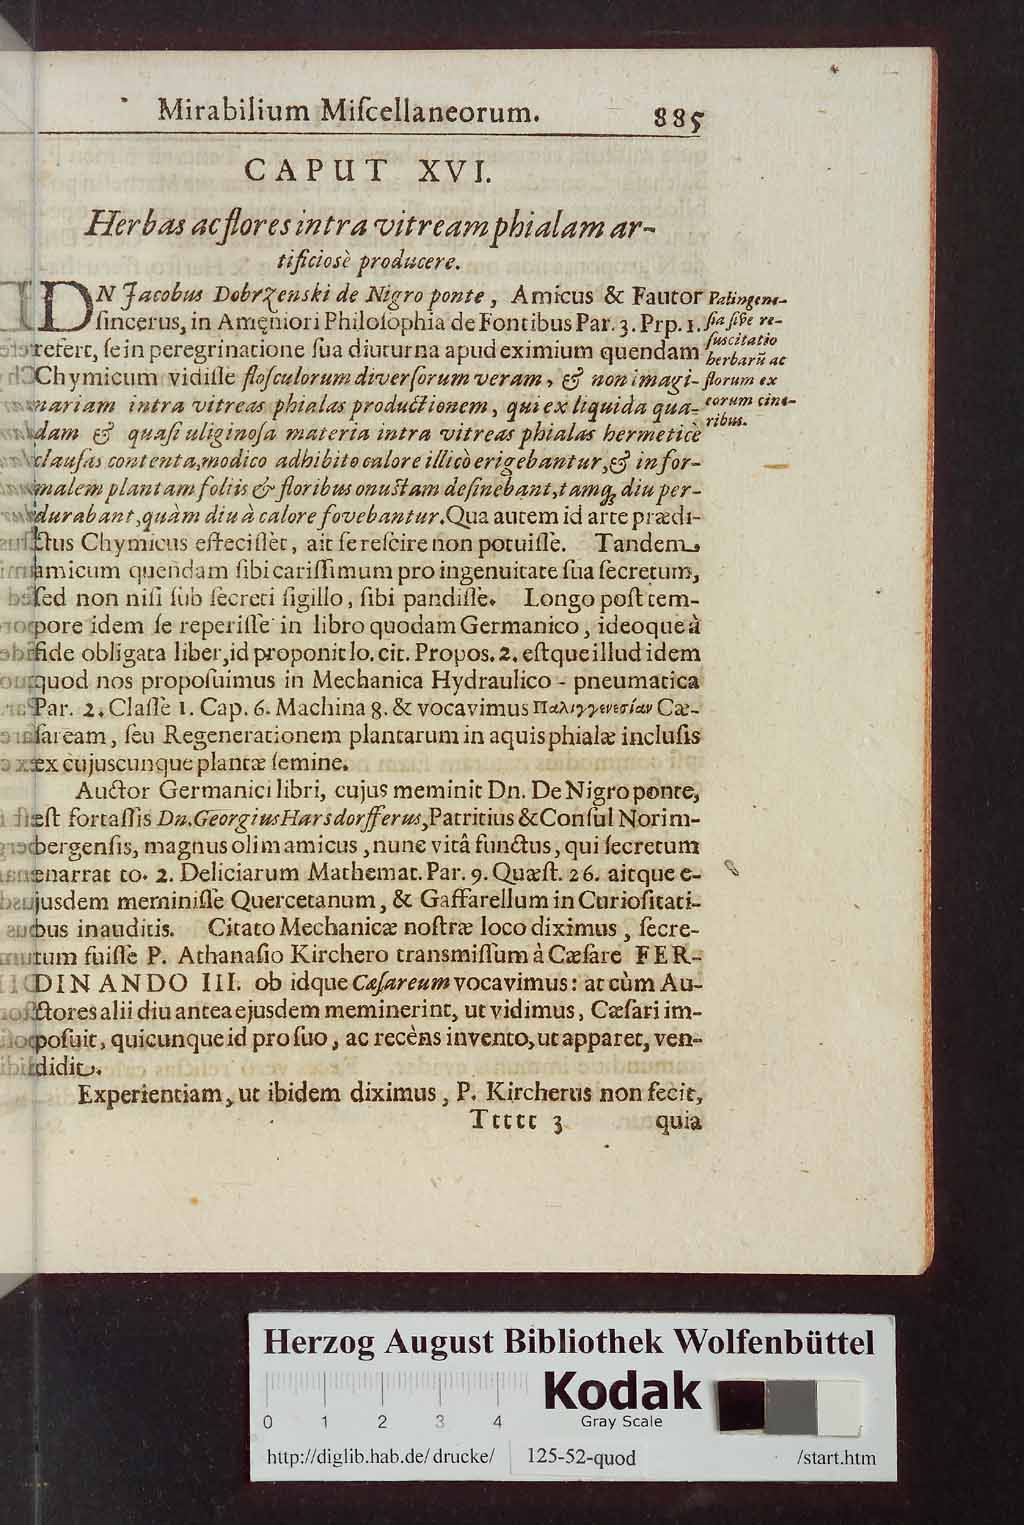 Mirabilium Miſcellaneorum. 885
CAPUT XVI.
Herbas ac flores intra vitream phialam ar-
tificiosè producere.
DN Jacobus Dobrzenski de Nigro ponte, Amicus & Fautor
ſincerus, in Amęniori Philoſophia de Fontibus Par. 3. Prp. 1.
refert, ſe in peregrinatione ſua diuturna apud eximium quendam
Chymicum vidiſſe floſculorum diverſorum veram, & non imagi-
nariam intra vitreas phialas productionem, qui ex liquida qua-
dam & quaſi uliginoſa materia intra vitreas phialas hermeticè
clauſas contenta, modico adhibito calore illicò erigebantur, & in for-
malem plantam foliis & floribus onuſtam deſinebant, tamq; diu per-
durabant, quàm diu à calore fovebantur. Qua autem id arte prædi-
ctus Chymicus effeciſſet, ait ſe reſcire non potuiſſe. Tandem
amicum quendam ſibi cariſſimum pro ingenuitate ſua ſecretum,
ſed non niſi ſub ſecreti ſigillo, ſibi pandiſſe. Longo poſt tem-
pore idem ſe reperiſſe in libro quodam Germanico, ideoque à
fide obligata liber, id proponit lo. cit. Propos. 2. eſtque illud idem
quod nos propoſuimus in Mechanica Hydraulico-pneumatica
Par. 2. Claſſe 1. Cap. 6. Machina 8. & vocavimus Παλιγγενεσίαν Cæ-
ſaream, ſeu Regenerationem plantarum in aquis phialæ incluſis
ex cujuscunque plantæ ſemine.
Auctor Germanici libri, cujus meminit Dn. De Nigro ponte,
eſt fortaſſis Dn. Georgius Harsdorfferus, Patritius & Conſul Norim-
bergenſis, magnus olim amicus, nunc vitâ functus, qui ſecretum
enarrat to. 2. Deliciarum Mathemat. Par. 9. Quæſt. 26. aitque e-
jusdem meminiſſe Quercetanum, & Gaffarellum in Curioſitati-
bus inauditis. Citato Mechanicæ noſtræ loco diximus, ſecre-
tum fuiſſe P. Athanaſio Kirchero transmiſſum à Cæſare FER-
DINANDO III. ob idque Cæſareum vocavimus: at cùm Au-
ctores alii diu antea ejusdem meminerint, ut vidimus, Cæſari im-
poſuit, quicunque id pro ſuo, ac recèns invento, ut apparet, ven-
didit.
Experientiam, ut ibidem diximus, P. Kircherus non fecit,
Ttttt 3 quia
Palingene-
ſia ſive re-
ſuscitatio
herbarũ ac
florum ex
eorum cine-
ribus.
Herzog August Bibliothek Wolfenbüttel
Kodak
Gray Scale
0 1 2 3 4
http://diglib.hab.de/drucke/ 125-52-quod /start.htm